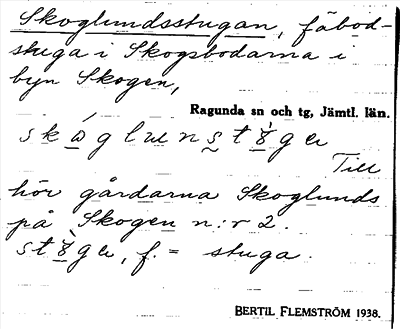 Skoglundsstugan, fäbod-
stuga i Skogsbodarna i
byn Skogen,
Ragunda sn och tg, Jämtl. län.
Till
hör gårdarna Skoglunds
på Skogen n:r 2.
f. = stuga.
BERTIL FLEMSTRÖM 1938.